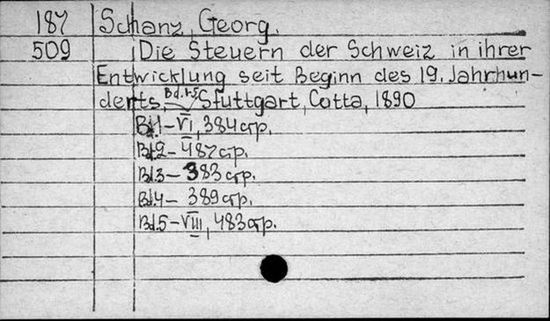 187 Schanz, Georg.
509 Die Steuern der Schweiz in ihrer
Entwicklung seit Beginn des 19. Jahrhun-
derts, Bd.1-5, Stuttgart, Cotta, 1890
Bd.1-VI, 384 стр.
Bd.2- 487 стр.
Bd.3- 383 стр.
Bd.4- 389 стр.
Bd.5-VIII, 483 стр.